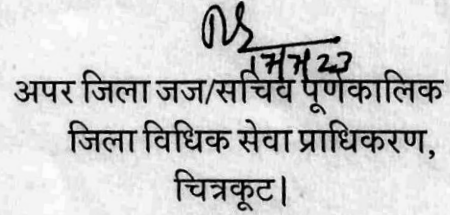 अपर जिला जज/सचिव पूर्णकालिक
जिला विधिक सेवा प्राधिकरण,
चित्रकूट।